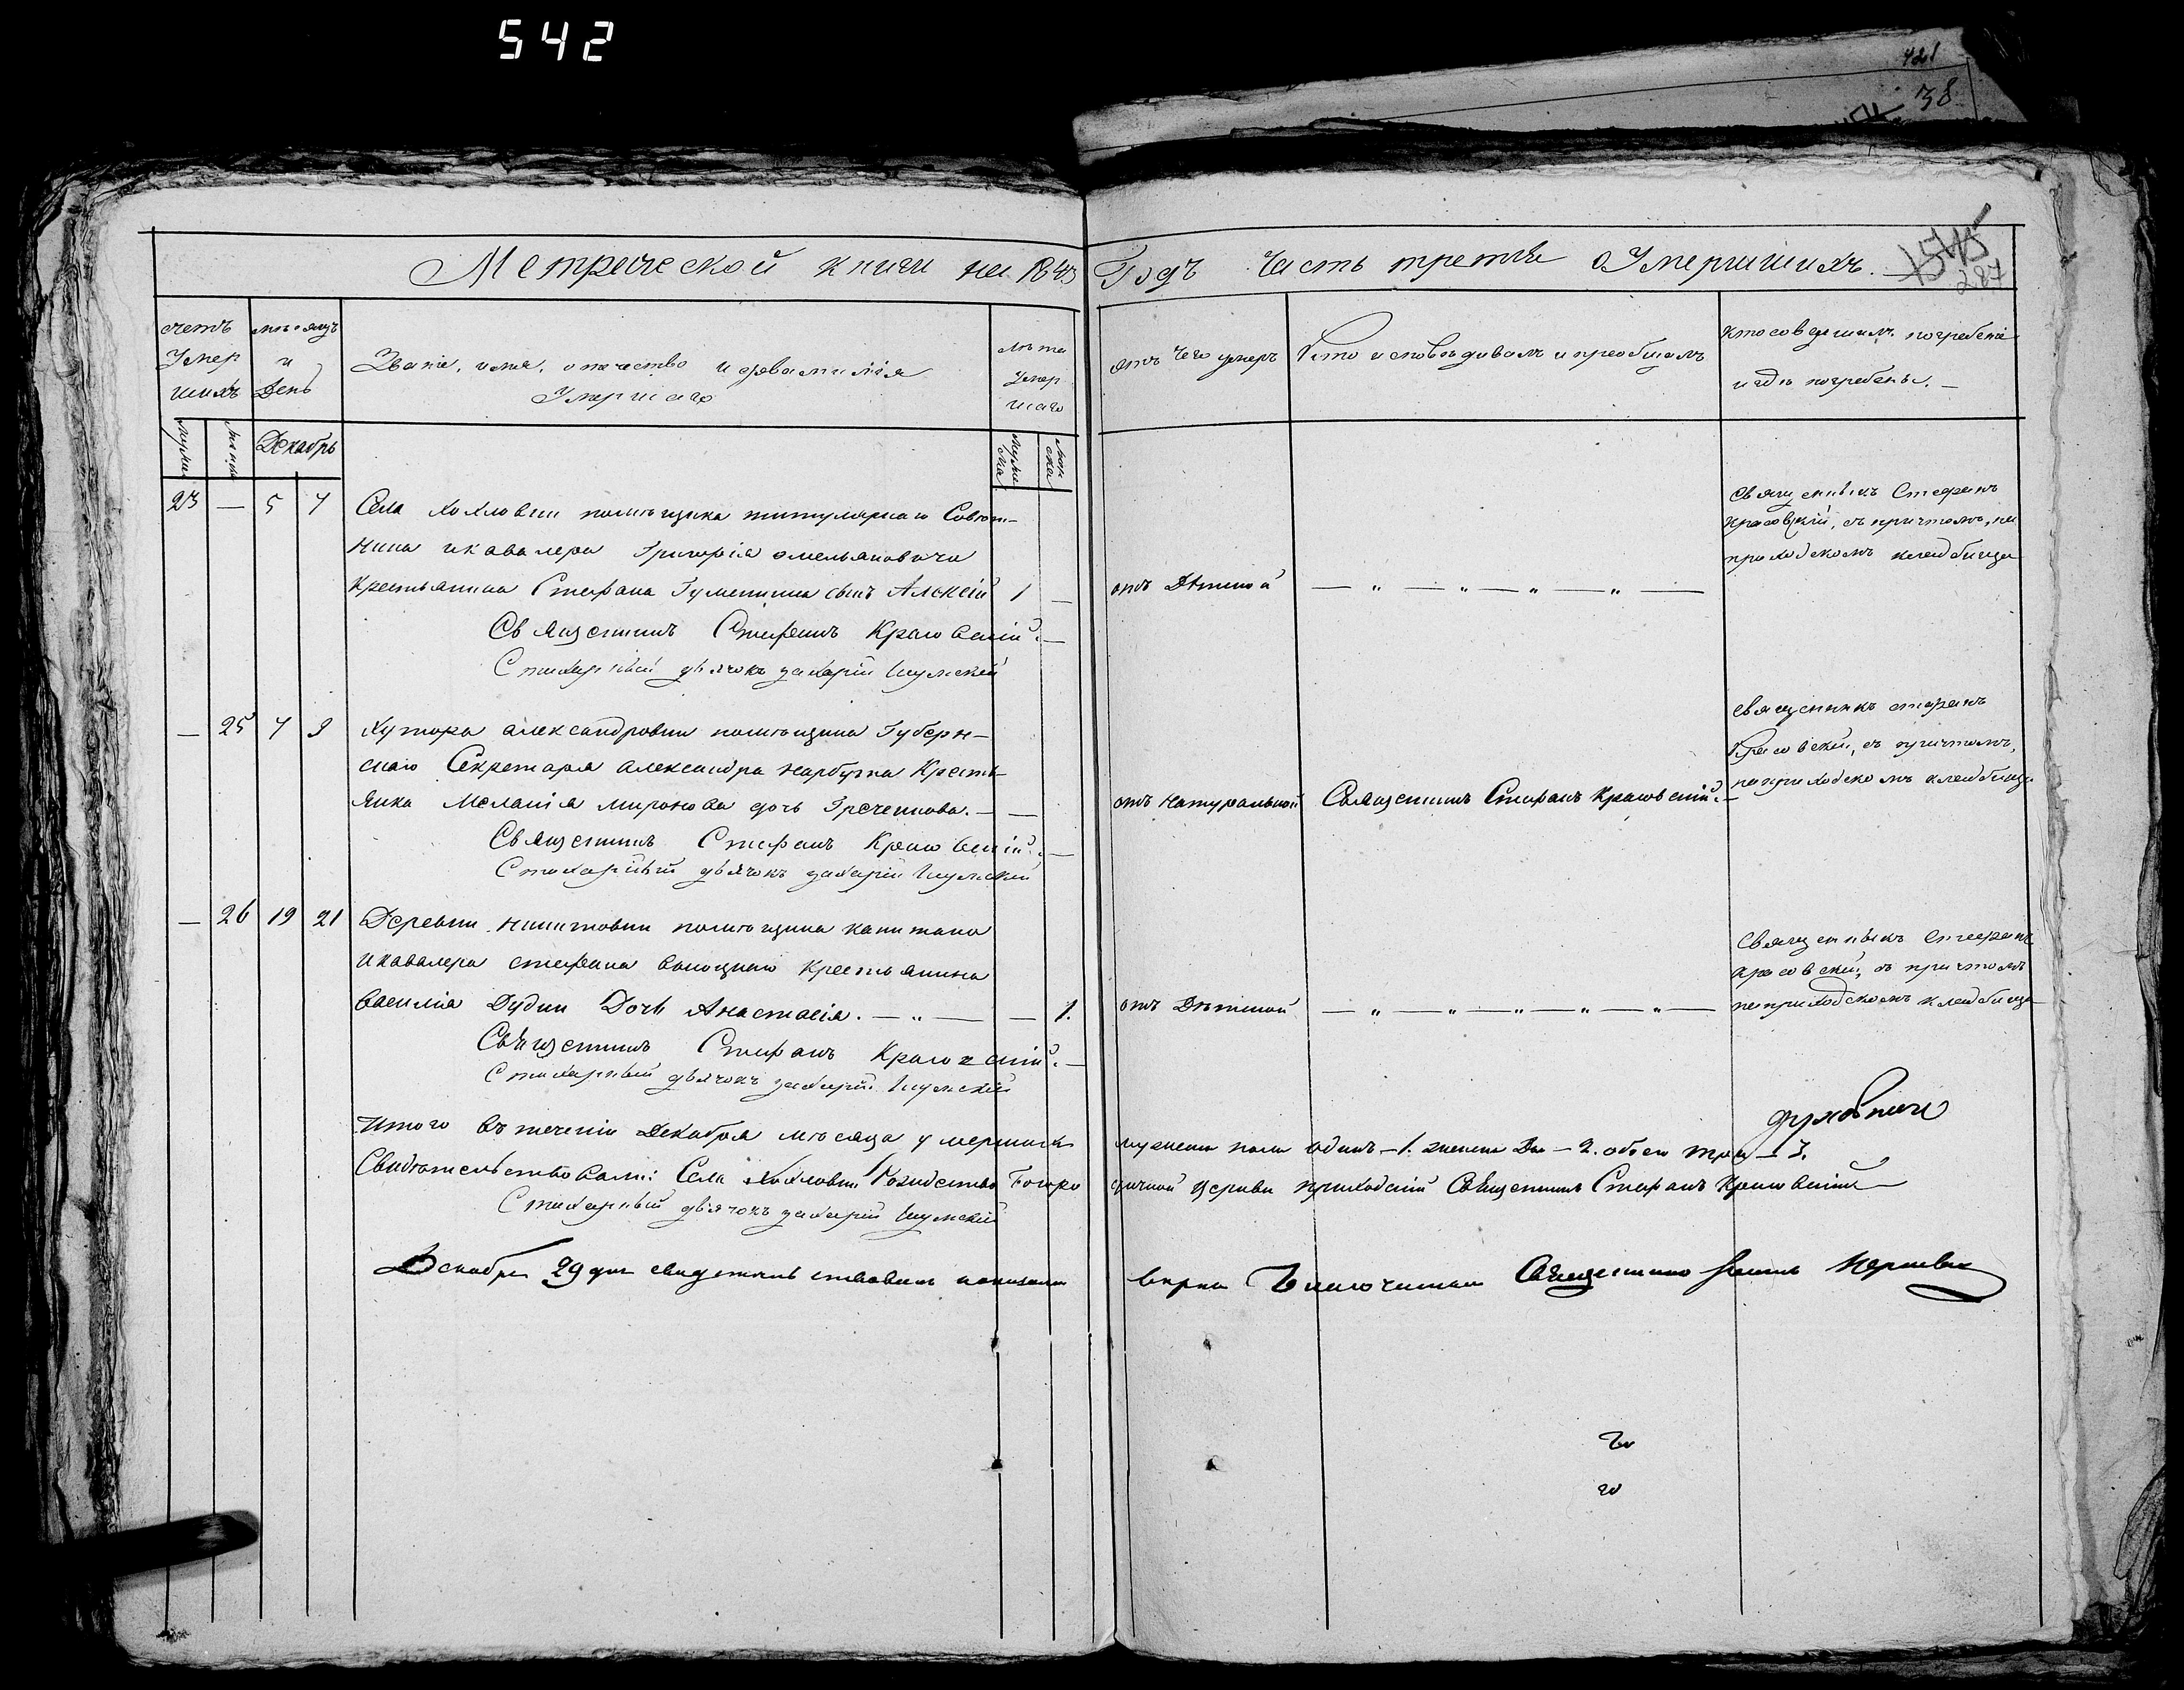 542
421
38
Метрической книги на 1843 Годъ Часть третья О Умершихъ.
287
счетъ Умер шихъ
мѣсяцъ и День
Званіе, имя, отчество и фвамилія Умершаго
лѣта Умер шаго
отъ чего умеръ
Кто исповѣдовалъ и преобщалъ
кто совершалъ погребеніе
и гдѣ погребены.
Декабрь
23 — 5 7
Села Хохловки помѣщика титулярнаго Совѣт-
ника и кавалера Григорія омельяновича
крестьянина Стефана Гуменика сынъ Алексій 1 —
отъ Дѣтской
Священникъ Стефанъ
Красовскій, съ причтомъ, на
приходскомъ кладбищи
Священникъ Стефанъ Красовскій
Стихарный дьячокъ захарій Шумскій
— 25 7 9
Хутора александровки помѣщика Губерн-
скаго Секретаря александра нарбута Кресть-
янка Меланія миронова дочь Гречентова. — —
отъ натуральной
Священникъ Стефанъ Красовскій
священникъ стефанъ
Красовскій, съ причтомъ,
на приходскомъ кладбищи
Священникъ Стефанъ Красовскій
Стихарный дьячокъ захарій Шумскій
— 26 19 21
Деревни помѣщика капитана
и кавалера стефана крестьянина
василія Дудки Дочь Анастасія. — „ — — 1.
отъ Дѣтской
Священникъ Стефанъ
Красовскій, съ причтомъ
на приходскомъ кладбищи
Священникъ Стефанъ Красовскій
Стихарный дьячокъ захарій Шумскій
Итого въ теченіи Декабря мѣсяца умершихъ мужеска пола одинъ — 1. женска Два — 2. обоего три — 3. духовныи
Свидѣтельствовали: Села Хохловки Рождество Богородичной Церкви приходскій Священникъ Стефанъ Красовскій
Стихарный дьячокъ захарій Шумскій
Декабря 29 дня
Благочинный Священникъ